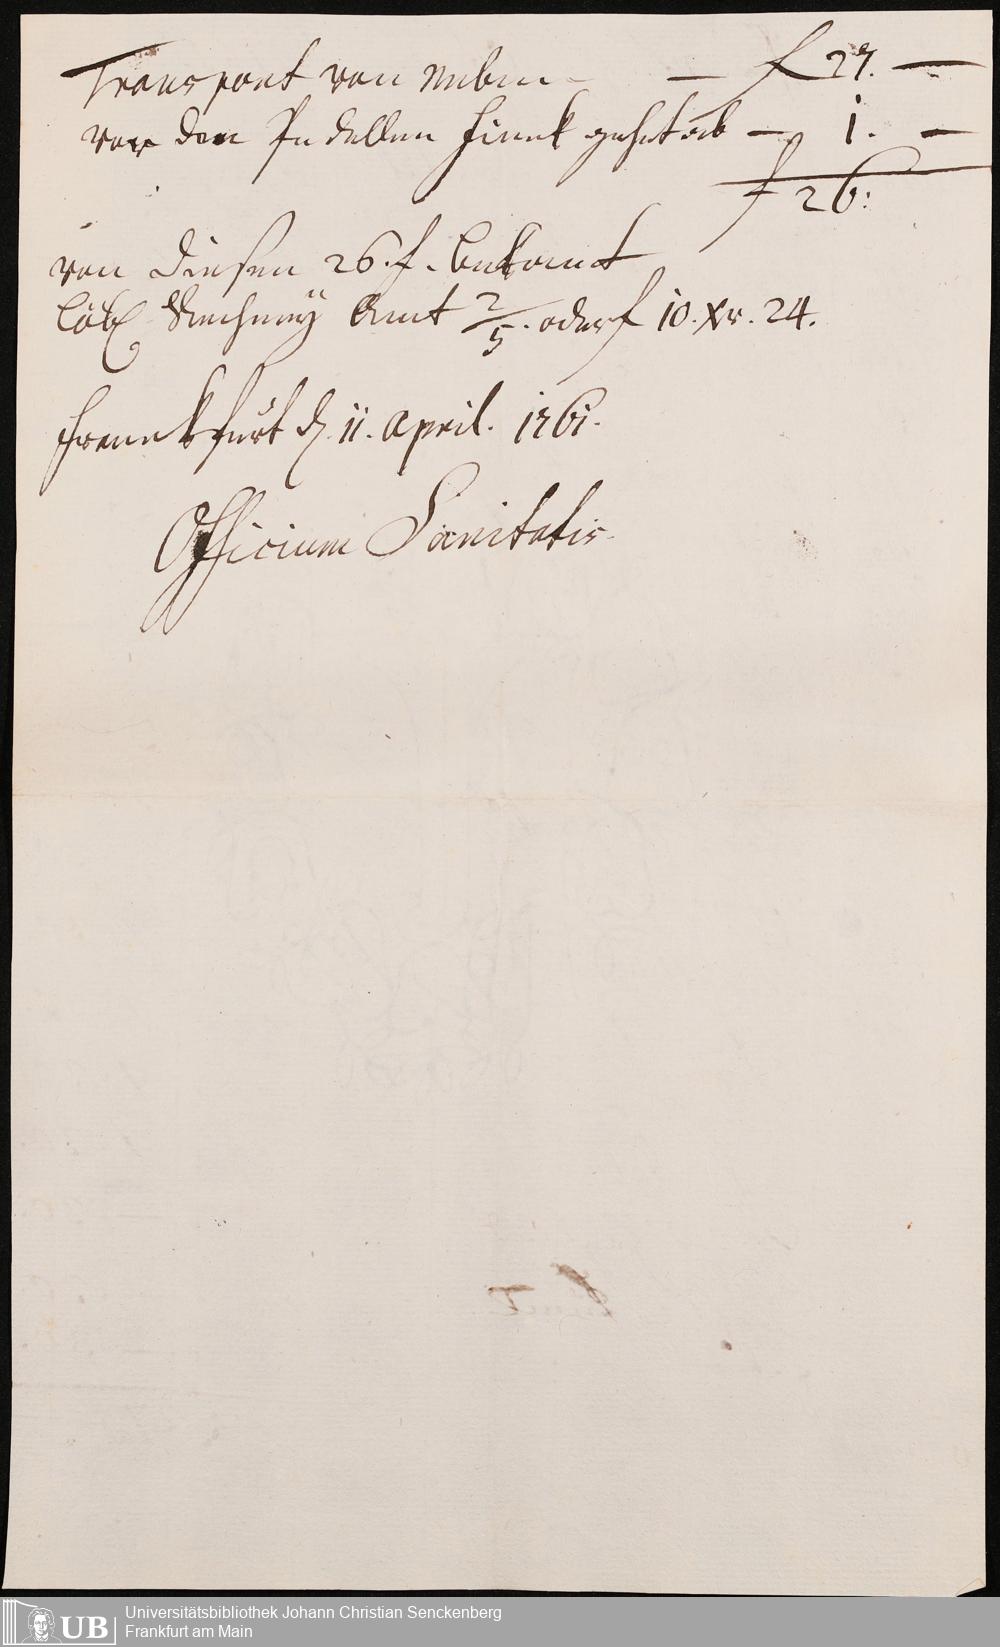 Transport von neben — — f 27. —
vor den Pedellen Finck gehet ab — 1. —
f 26:
von diesen 26. f. bekomt
Löbl. Rechney Amt 2/5. oder f 10. Xr. 24.
Franckfurt d. 11. April. 1761.
Officium Sanitatis.
UB
Universitätsbibliothek Johann Christian Senckenberg
Frankfurt am Main